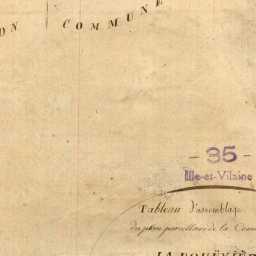 ON COMMUNE
- 35 -
Ille-et-Vilaine
Tableau d'assemblage
du plan parcellaire de la Com